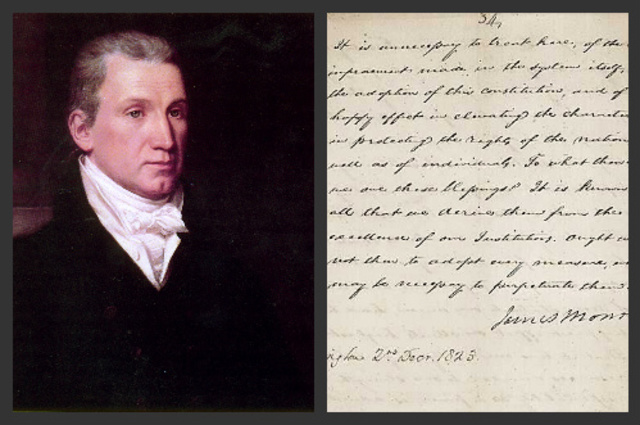 34,
It is unnecessary to treat here, of the
improvement made in the system itself,
the adoption of this Constitution, and of
happy effect in elevating the character
in protecting the rights of the nation
well as of individuals. To what then
we owe these blessings? It is known
all that we derive them from the
excellence of our Institutions. Ought
not then to adopt every measure,
may be necessary to perpetuate them.
James Mon
2nd Decr. 1823.